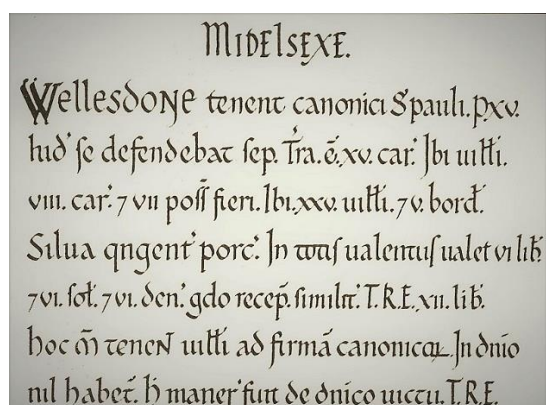 MIDELSEXE.
Wellesdone tenent canonici S' pauli. p xv.
hid' se defendebat sep. Tra. ē. xv. car'. Ibi uilłi.
viii. car'. 7 vii poss̃ fieri. Ibi. xxv. uilłi. 7 v. bord̃.
Silua qngent' porc'. In totis ualentiis ualet vi lib̃.
7 vi. sol̃. 7 vi. den'. qdo recep̃. similit̃. T.R.E. xii. lib̃.
hoc m̃ tenent uilłi ad firmā canonicoꝝ. In dnio
nil habet̃. h̃ maner' fuit de dnico uictu. T.R.E.